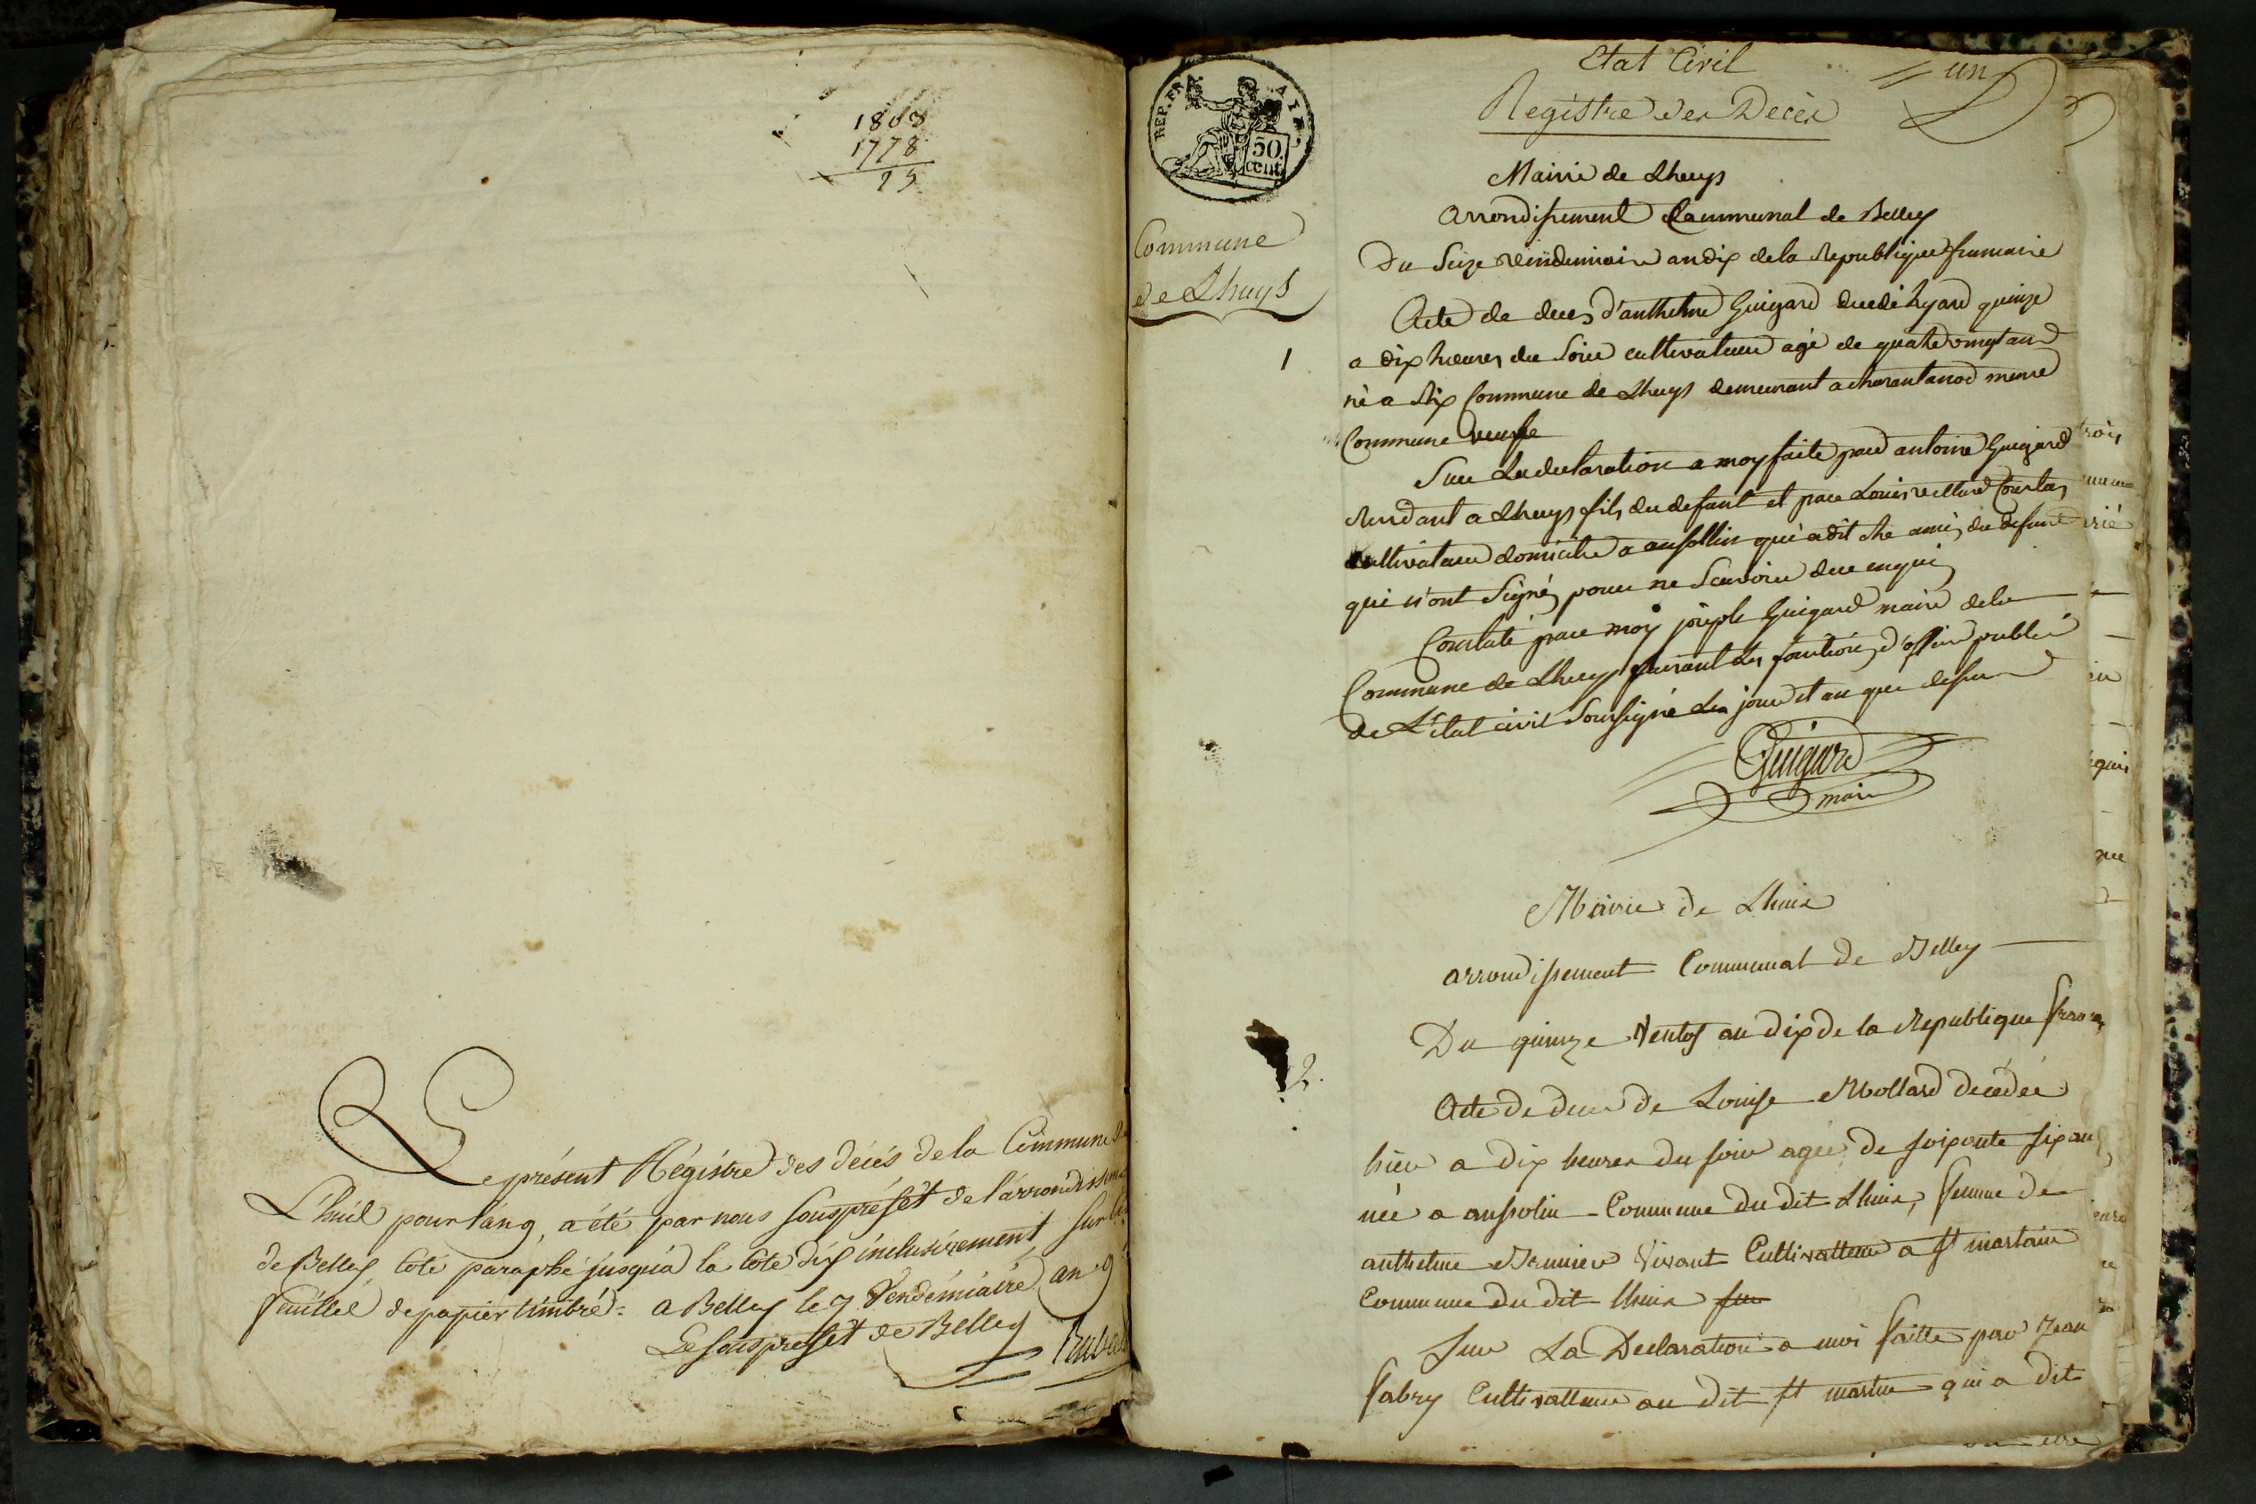 1808
1778
25
Le présent Régistre des décés de la Commune de
L'huil pour l'an 9, a été par nous souspréfét de l'arrondissme
de Belley coté paraphé jusqu'a la cote dix inclusivement sur
feuillet de papier timbré. a Belley le 7 Vendémiaire an 9
Le souspréfét de Belley
REP. FRA
50.
cent.
Etat Civil
un
Registre des Decès
Commune
de Lhuys
Mairie de Lhuys
arrondissement Communal de Belley
Du Seize vendemiaire an dix de la Republique francaise
1
Acte de deces d'anthelme Guigard decedé hyard quinze
a dix heures du Soir cultivateur agé de quatre vingt ans
né a Rix Commune de Lhuys demeurant a charantanod meme
Commune veuf
Sur La declaration a moy faite par antoine Guigard
Rendant a Lhuys fils du defunt et par Louis
cultivateur domicilié a ansollin qui a dit etre amis du defunt
qui n'ont Signés pour ne Scavoir de ce enquis
Constaté par moy joseph Guigard maire de la
Commune de Lhuys faisant les fonctions d'officier public
de L'etat civil Soussigné les jour et an que dessus
Guigard
maire
Mairie de Lhuis
arrondissement Communal de Belley
Du quinze Ventos an dix de la Republique franc
2.
Acte de deces de Louise Mollard decedée
hier a dix heures du soir agée de soixante six ans
née a ansolin Commune du dit Lhuis, femme de
anthelme Brunier vivant Cultivatteur a st martain
Commune du dit lhuis sur
Sur La Declaration a moi faitte par Jean
fabry Cultivatteur au dit st martin qui a dit